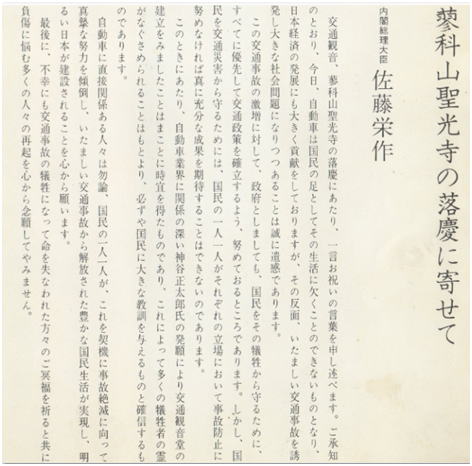 蓼科山聖光寺の落慶に寄せて
内閣総理大臣 佐藤栄作
交通観音、蓼科山聖光寺の落慶にあたり、一言お祝いの言葉を申し述べます。ご承知
のとおり、今日、自動車は国民の足としてその生活に欠くことのできないものとなり、
日本経済の発展にも大きく貢献をしておりますが、その反面、いたましい交通事故を誘
発し大きな社会問題になりつつあることは誠に遺憾であります。
この交通事故の激増に対して、政府としましても、国民をその犠牲から守るために、
すべてに優先して交通政策を確立するよう、努めておるところであります。しかし、国
民を交通災害から守るためには、国民の一人一人がそれぞれの立場において事故防止に
努めなければ真に充分な成果を期待することはできないのであります。
このときにあたり、自動車業界に関係の深い神谷正太郎氏の発願により交通観音堂の
建立をみましたことはまことに時宜を得たものであり、これによって多くの犠牲者の霊
がなぐさめられることはもとより、必ずや国民に大きな教訓を与えるものと確信するも
のであります。
自動車に直接関係ある人々は勿論、国民の一人一人が、これを契機に事故絶滅に向って
真摯な努力を傾倒し、いたましい交通事故から解放された豊かな国民生活が実現し、明
るい日本が建設されることを心から願います。
最後に、不幸にも交通事故の犠牲になって命を失なわれた方々のご冥福を祈ると共に
負傷に悩む多くの人々の再起を心から念願してやみません。